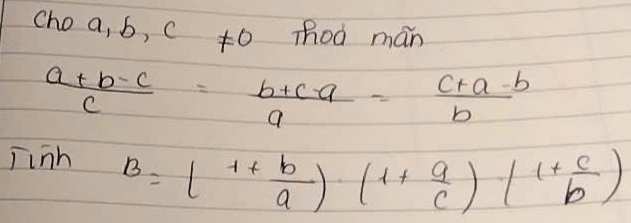 Cho a, b, c ≠0 Thoả mãn
(a+b-c)/c = (b+c-a)/a = (c+a-b)/b
Tính B = (1+ b/a) (1+ a/c) (1+ c/b)